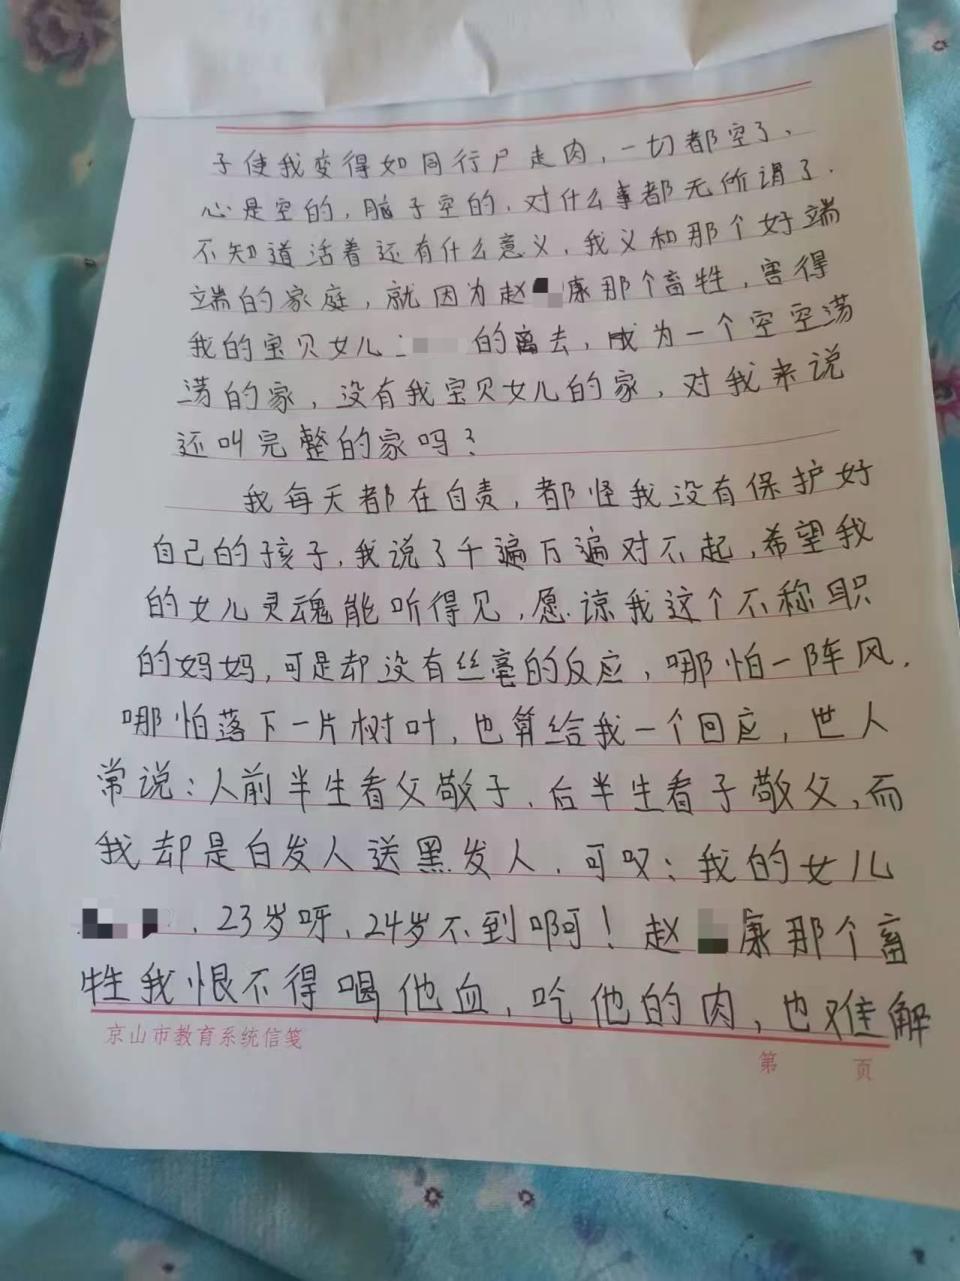 子使我变得如同行尸走肉，一切都空了、
心是空的，脑子空的，对什么事都无所谓了．
不知道活着还有什么意义，我义和那个好端
端的家庭，就因为赵康那个畜牲，害得
我的宝贝女儿的离去，成为一个空空荡
荡的家，没有我宝贝女儿的家，对我来说
还叫完整的家吗？
我每天都在自责，都怪我没有保护好
自己的孩子，我说了千遍万遍对不起，希望我
的女儿灵魂能听得见，愿谅我这个不称职
的妈妈，可是却没有丝毫的反应，哪怕一阵风．
哪怕落下一片树叶，也算给我一个回应，世人
常说：人前半生看父敬子、后半生看子敬父，而
我却是白发人送黑发人．可叹：我的女儿
、23岁呀、24岁不到啊！赵康那个畜
牲我恨不得喝他血，吃他的肉，也难解
京山市教育系统信笺
第 页